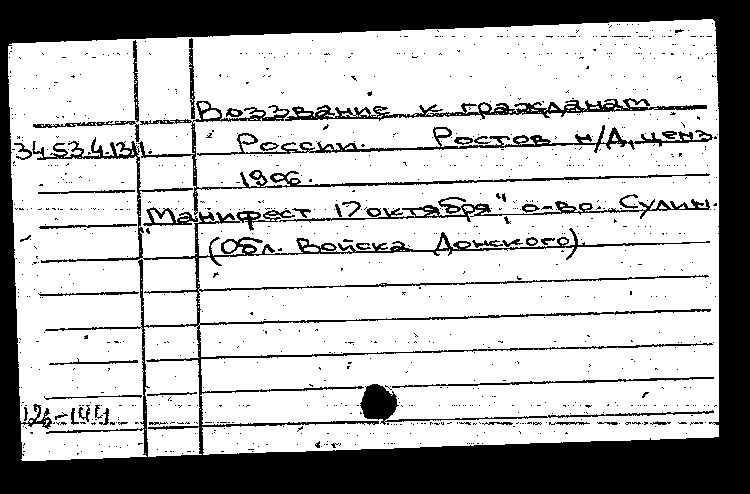 Воззвание к гражданам
34.53.4.1311. России. Ростов н/Д, ценз.
1906.
"Манифест 17 октября" о-во. Сулин.
(Обл. Войска Донского)
126-144